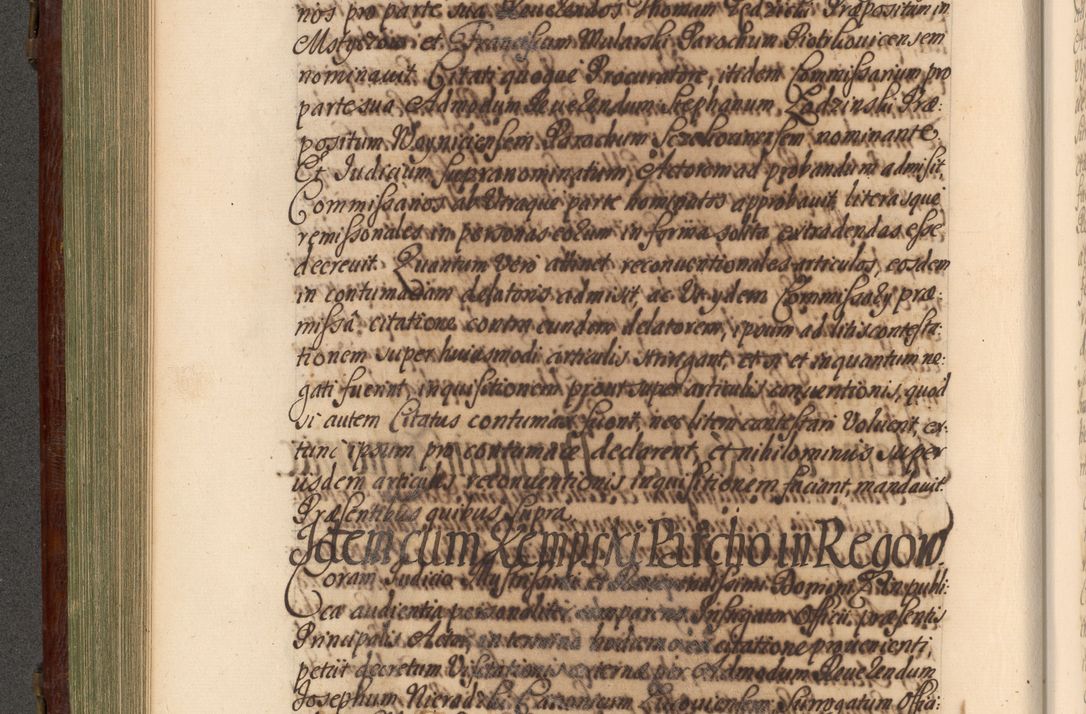 nós pro parte sua Reuerendos Thomam Præpositum in
et Franciscum Mularski Parochum Piotrkouicensem
nominauit. Citati quoque Procuratore, itidem Commissarium pro
parte sua Admodum Reuerendum Stephanum Łodzinski Præ:
positum Woyniciensem Parochum nominante.
Et Judicium supranominatum, Actorem ad probandum admisit,
Commissarios ab utraque parte nominatos approbauit literasque
remissonales in personas eorum in forma solita extradendas esse
decreuit. Quantum Verò attinet reconuentionales articulos, eosdem
in contumaciam delatoris admisit, ac Vt ijdem Commissarij præ:
missâ citatione contra eundem delatorem, ipsum ad litiscontesta:
tionem super huiusmodi articulis stringant, et si et inquantum ne:
gati fuerint, inquisitionem prout super articulis conuentionis, quod
si autem Citatus contumax fuerit, nec litem contestari Voluerit, ex
tunc ipsum pro contumace declarent, et nihilominus super
iisdem articulis reconuentionis inquisitionem faciant, mandauit.
Præsentibus quibus supra.
Idem cum Kempski Parocho in Regow
Coram Judicio Illustrissimi et Reuerendissimi Domini in publi:
ca audientia personaliter comparens Instigator Officii, præsentis
Principalis Actor, in termino hodierno ex citatione proueniēnti,
petiit decretum Visitationis externæ per Admodum Reuerendum
Josephum Nieradzki Canonicum Surrogatum Offici: